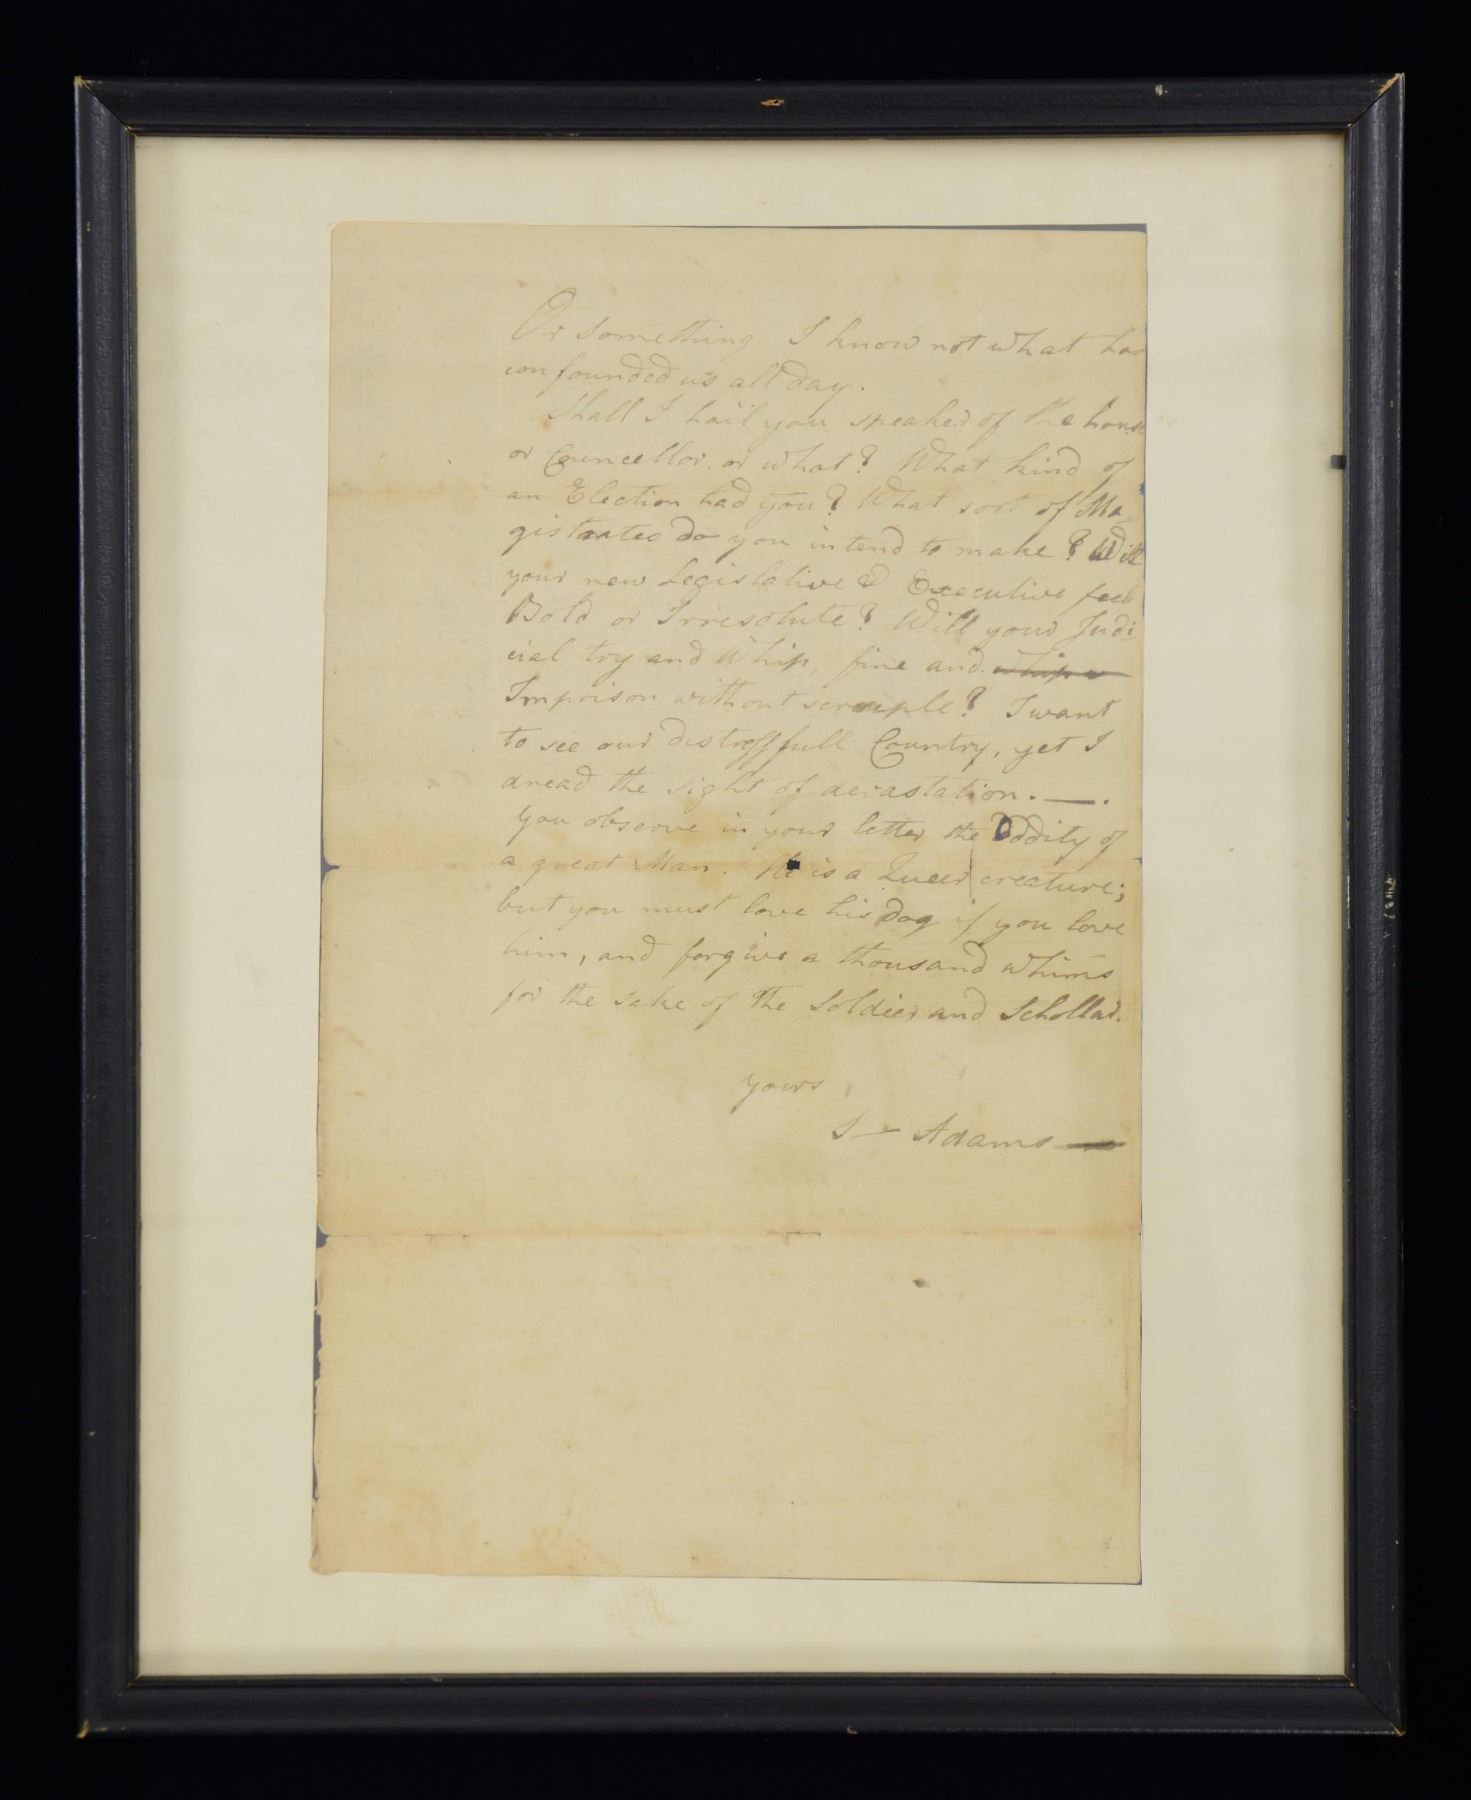 Or something I know not what has
confounded us all day.
Shall I hail you speaker of the house
or Councellor, or what? What kind of
an Election had you? What sort of Ma
gistrates do you intend to make? Will
your new Legislative & Executive feel
Bold or Irresolute? Will your Judi
cial try and Whip, fine and whip
Imprison without scruple? I want
to see our distressfull Country, yet I
dread the sight of devastation. —.
You observe in your letter the Oddity of
a great Man. He is a Queer creature;
but you must love his dog if you love
him, and forgive a thousand whims
for the sake of the Soldier and Schollar.
yours
S — Adams —